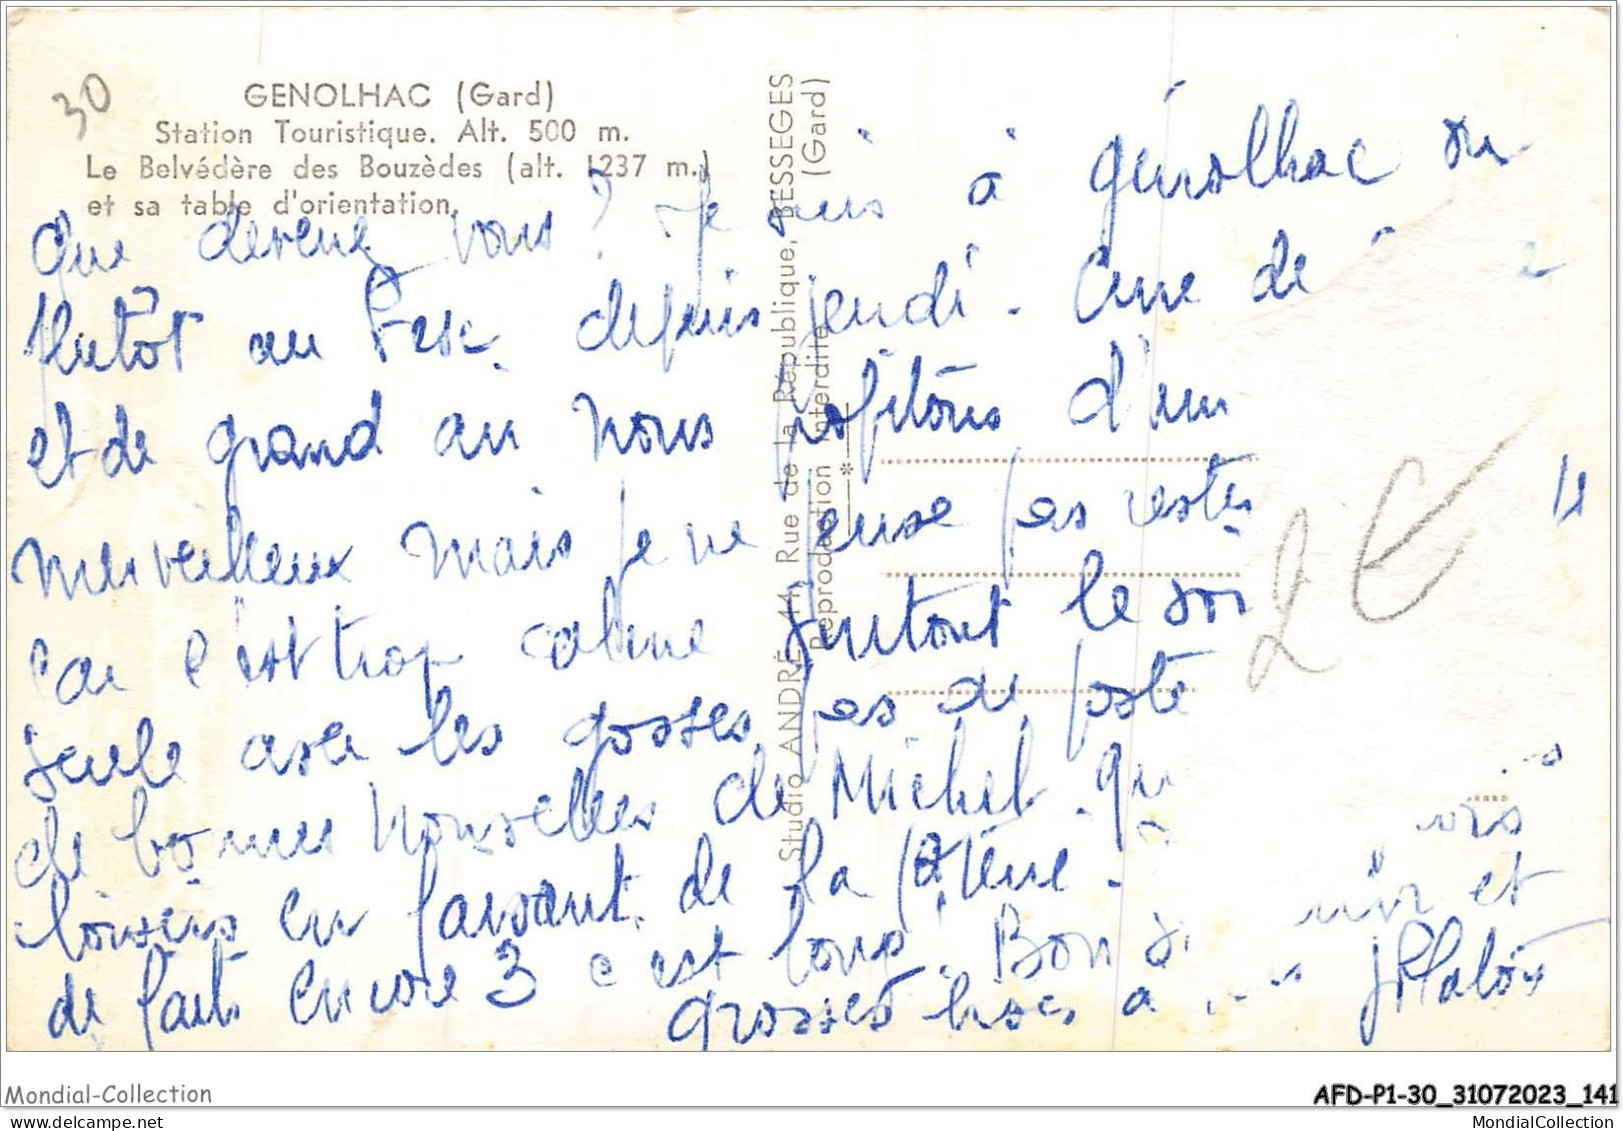 30
GENOLHAC (Gard)
Station Touristique. Alt. 500 m.
Le Belvédère des Bouzèdes (alt. 1237 m.)
et sa table d'orientation.
Studio ANDRÉ, 44, Rue de la République, BESSEGES (Gard)
Reproduction Interdite
Que devenez vous ? Je suis à Génolhac ou
plutôt au depuis jeudi. Cure de
et de grand air nous profitons d'un
merveilleux mais je ne pense pas rester
car c'est trop calme surtout le soir
seule avec les gosses, pas de poste
de bonnes nouvelles de Michel. Qu
loisirs en faisant de la
de faits encore 3 c'est long. Bon et
grosses bises à
2€
Mondial-Collection
AFD-P1-30_31072023_141
mondialcollection
MondialCollection